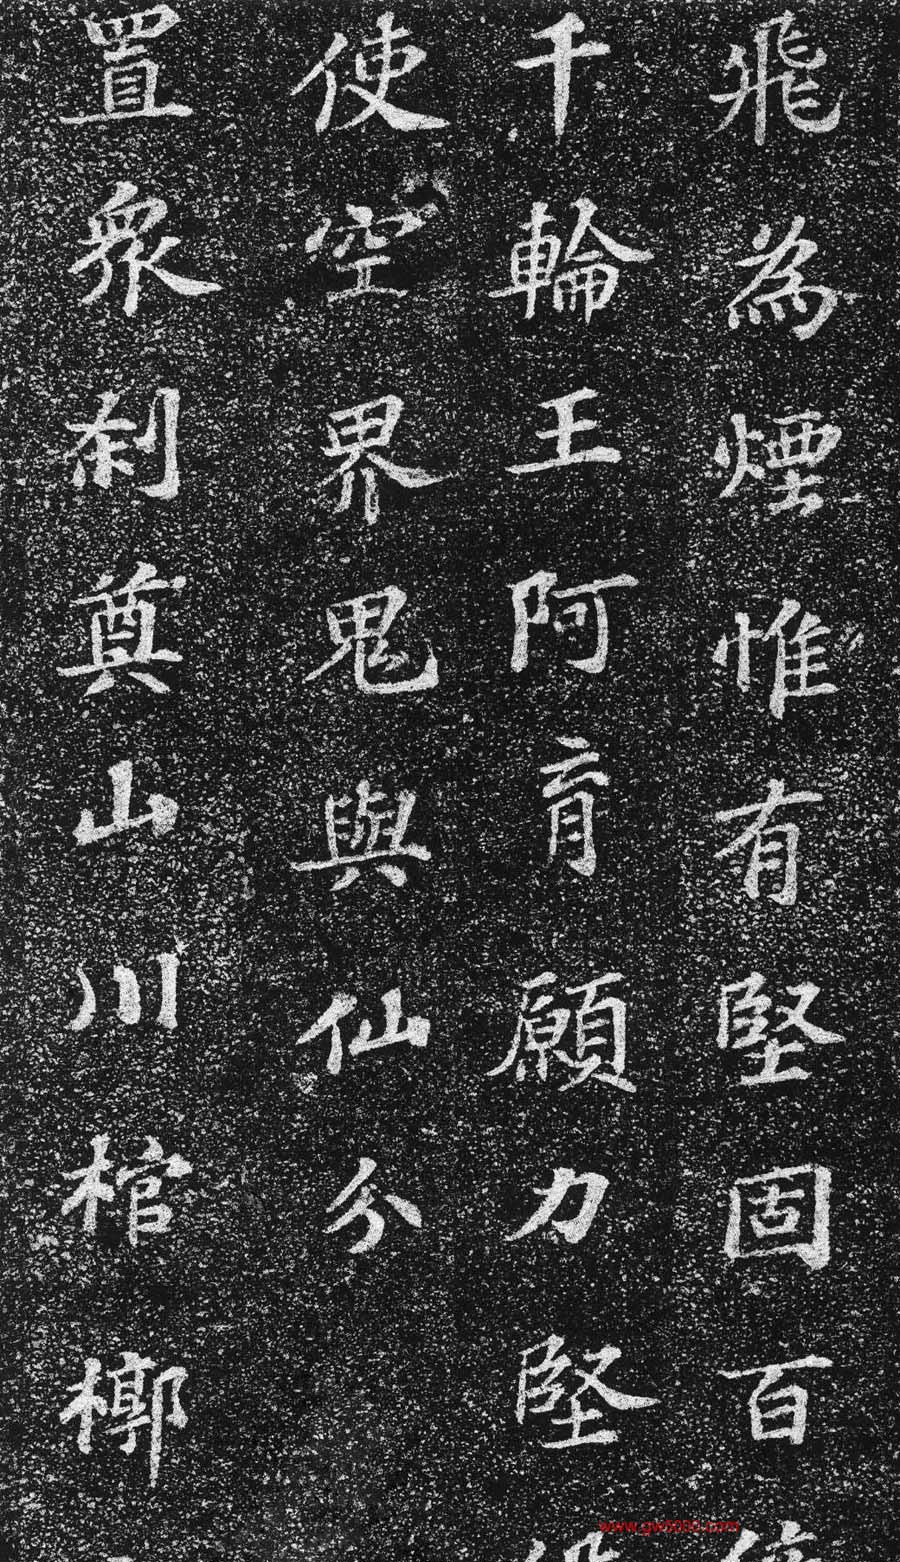 飛為煙惟有堅固百
千輪王阿育願力堅
使空界鬼與仙分
置眾剎奠山川棺槨
www.gw5000.com